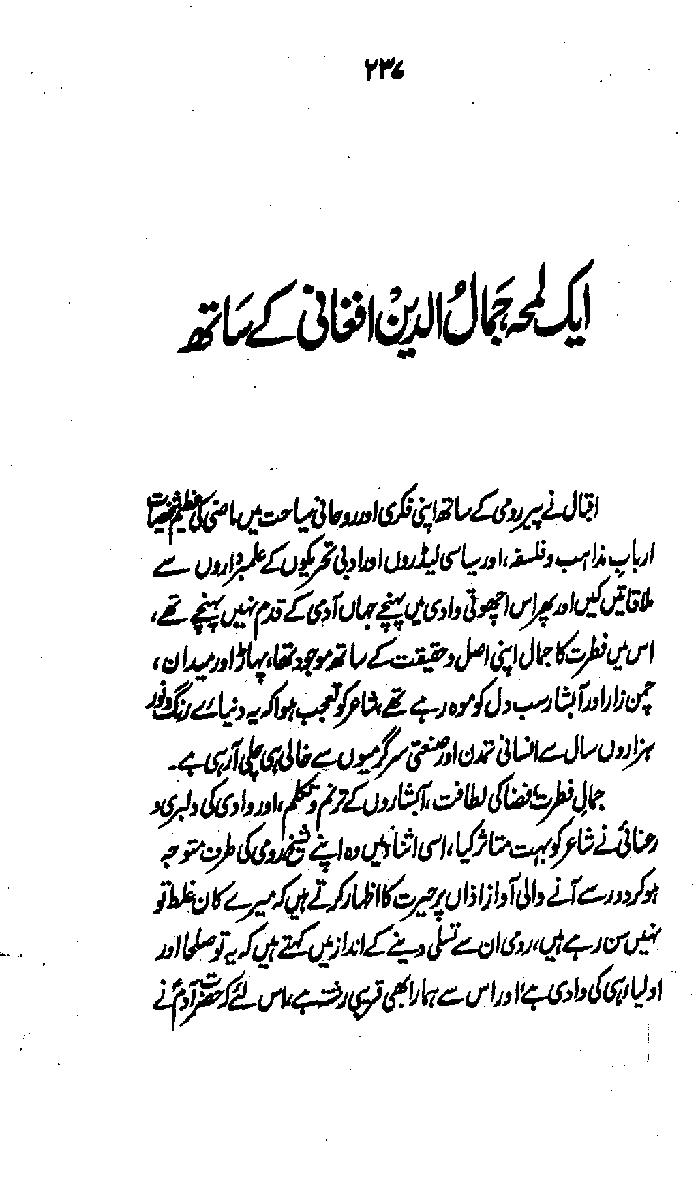 ۲۳۷
ایک لمحہ جمالُ الدین افغانی کے ساتھ
اقبال نے پیر رومی کے ساتھ اپنی فکری اور روحانی سیاحت میں ماضی کی عظیم شخصیات
اربابِ مذاہب و فلسفہ، اور سیاسی لیڈروں اور ادبی تحریکوں کے علمبرداروں سے
ملاقاتیں کیں اور پھر اس اچھوتی وادی میں پہنچے جہاں آدمی کے قدم نہیں پہنچے تھے،
اس میں فطرت کا جمال اپنی اصل و حقیقت کے ساتھ موجود تھا، پہاڑ اور میدان،
چمن زار اور آبشار سب دل کو موہ رہے تھے، شاعر کو تعجب ہوا کہ یہ دنیائے رنگ و نور
ہزاروں سال سے انسانی تمدن اور صنعتی سرگرمیوں سے خالی ہی چلی آرہی ہے۔
جمالِ فطرت، فضا کی لطافت، آبشاروں کے ترنم و تکلم، اور وادی کی دلبری و
رعنائی نے شاعر کو بہت متاثر کیا، اسی اثنا میں وہ اپنے شیخ رومی کی طرف متوجہ
ہو کر دور سے آنے والی آواز اذاں پر حیرت کا اظہار کرتے ہیں کہ میرے کان غلط تو
نہیں سن رہے ہیں، رومی ان سے تسلی دینے کے انداز میں کہتے ہیں کہ یہ تو صلحا اور
اولیاء ہی کی وادی ہے اور اس سے ہمارا بھی قریبی رشتہ ہے، اس لئے کہ حضرت آدمؑ نے